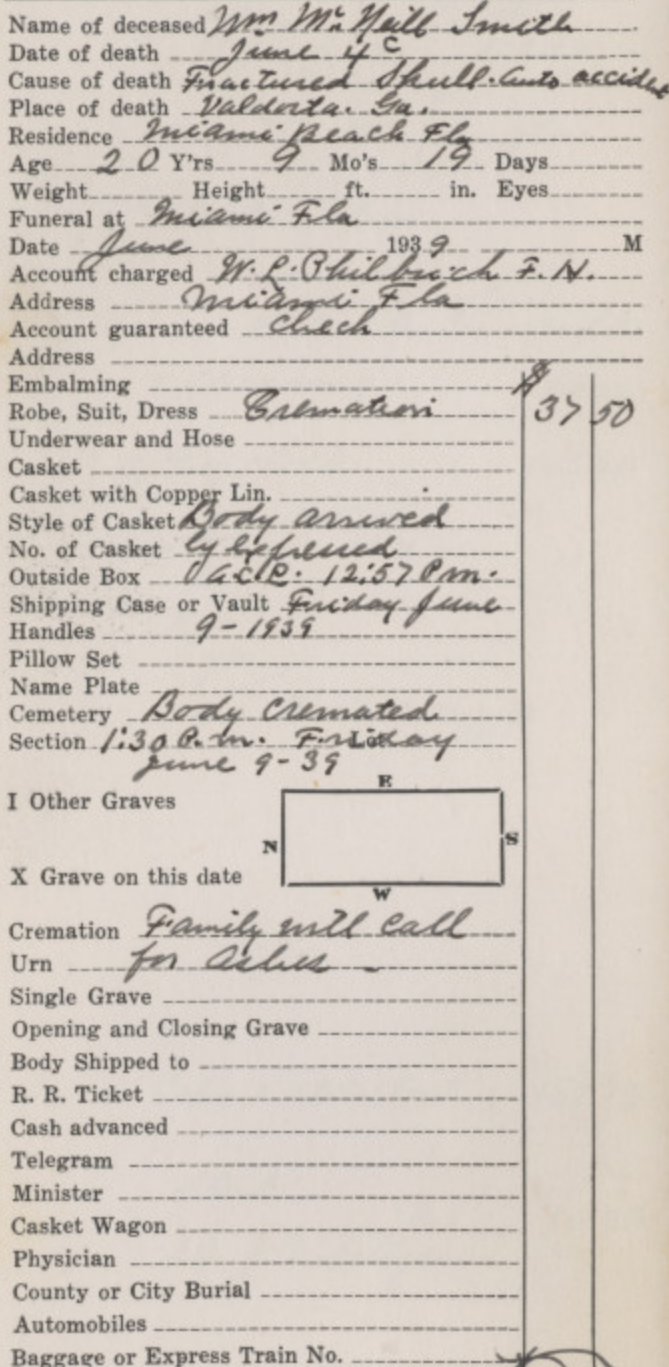 Name of deceased Wm Mc Neill Smith
Date of death June 4
Cause of death Fractured Skull - Auto accident
Place of death Valdosta. Ga.
Residence Miami Beach Fla
Age 20 Y'rs 9 Mo's 19 Days
Weight Height ft. in. Eyes
Funeral at Miami Fla
Date June 1939 M
Account charged W. L. Philbrick F. H.
Address Miami Fla
Account guaranteed Check
Address
Embalming $
Robe, Suit, Dress Cremation 37 50
Underwear and Hose
Casket
Casket with Copper Lin.
Style of Casket Body arrived
No. of Casket by
Outside Box 12:57 Pm.
Shipping Case or Vault Friday June
Handles 9-1939
Pillow Set
Name Plate
Cemetery Body Cremated
Section 1:30 P.m. Friday Lot
June 9-39
E
I Other Graves
N S
X Grave on this date
W
Cremation Family will call
Urn for ashes -
Single Grave
Opening and Closing Grave
Body Shipped to
R. R. Ticket
Cash advanced
Telegram
Minister
Casket Wagon
Physician
County or City Burial
Automobiles
Baggage or Express Train No.